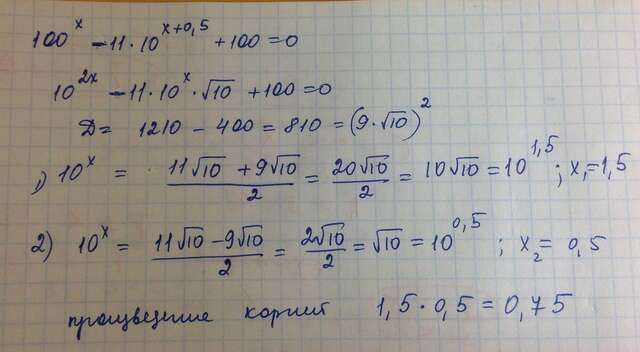 100^x - 11·10^{x+0,5} + 100 = 0
10^{2x} - 11·10^x·√10 + 100 = 0
Д = 1210 - 400 = 810 = (9·√10)^2
1) 10^x = (11√10 + 9√10)/2 = 20√10/2 = 10√10 = 10^{1,5}; x₁ = 1,5
2) 10^x = (11√10 - 9√10)/2 = 2√10/2 = √10 = 10^{0,5}; x₂ = 0,5
произведение корней 1,5·0,5 = 0,75